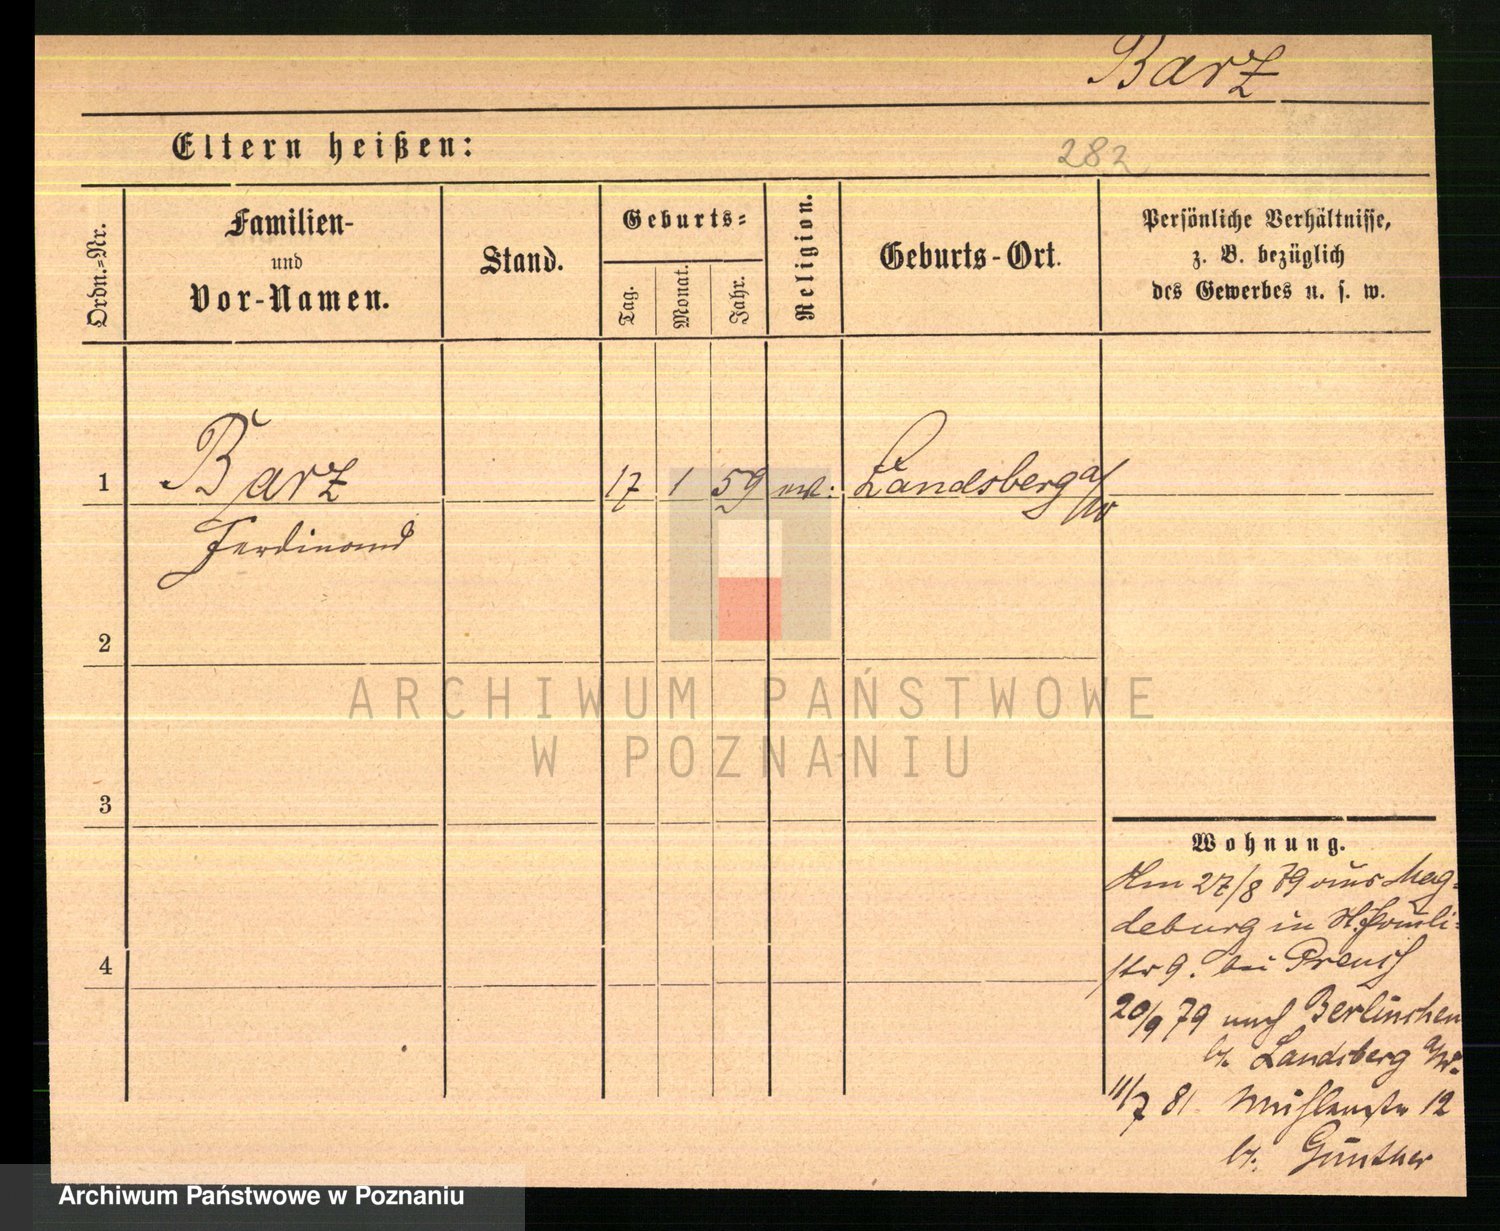 Barz
Eltern heißen:
282
Ordn.-Nr.
Familien-
und
Vor-Namen.
Stand.
Geburts-
Tag.
Monat.
Jahr.
Religion.
Geburts-Ort.
Persönliche Verhältnisse,
z. B. bezüglich
des Gewerbes u. s. w.
1 Barz 17 1 59 Landsberg a/W
Ferdinand
2
3
4
ARCHIWUM PAŃSTWOWE
W POZNANIU
Wohnung.
27/8 79 aus Mag-
deburg in
str 9. bei
20/9 79 nach Berlinchen
b. Landsberg a/W.
11/7 81 Mühlenstr 12
b. Günther
Archiwum Państwowe w Poznaniu